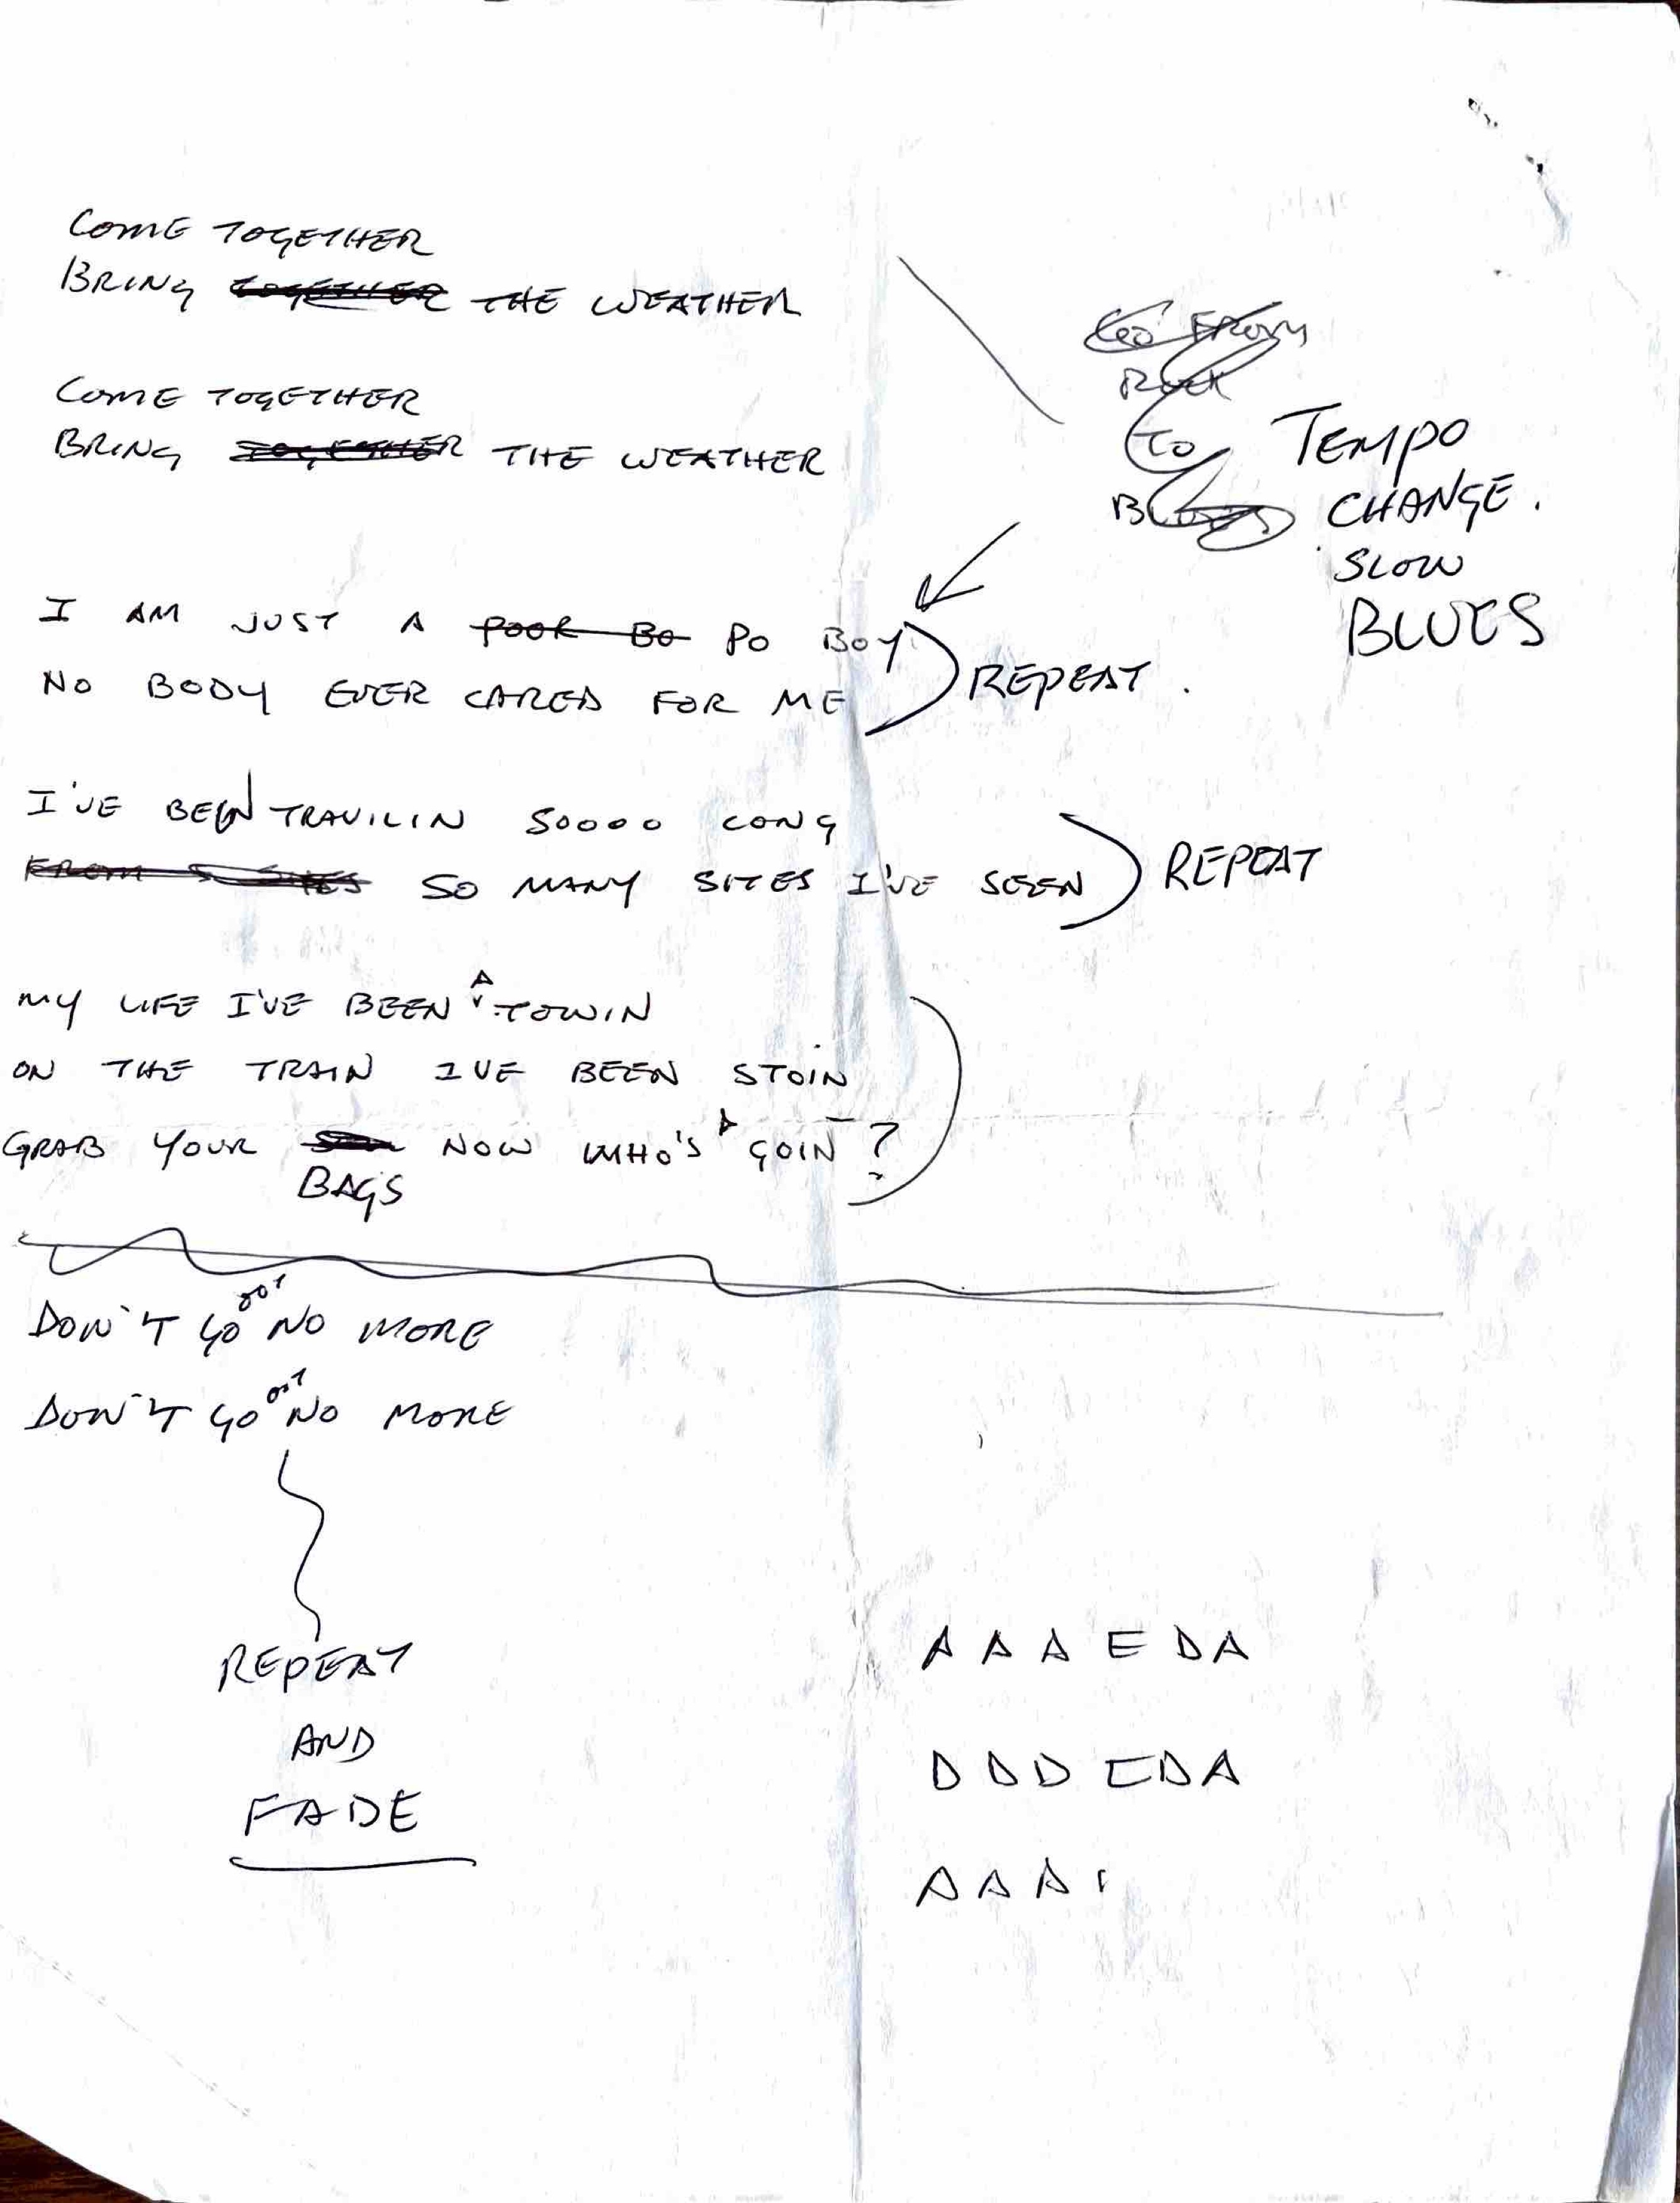 COME TOGETHER
BRING TOGETHER THE WEATHER
COME TOGETHER
BRING TOGETHER THE WEATHER
GO FROM
ROCK
TO
BLUES
TEMPO
CHANGE.
SLOW
BLUES
I AM JUST A POOR BO PO BOY
NO BODY EVER CARED FOR ME
REPEAT.
I'VE BEEN TRAVILIN SOOOO LONG
FROM SITES SO MANY SITES I'VE SEEN
REPEAT
MY LIFE I'VE BEEN A TOWIN
ON THE TRAIN IVE BEEN STOIN
GRAB YOUR NOW WHO'S A GOIN ?
BAGS
DON'T GO OUT NO MORE
DON'T GO OUT NO MORE
REPEAT
AND
FADE
A A A E D A
D D D E D A
A A A